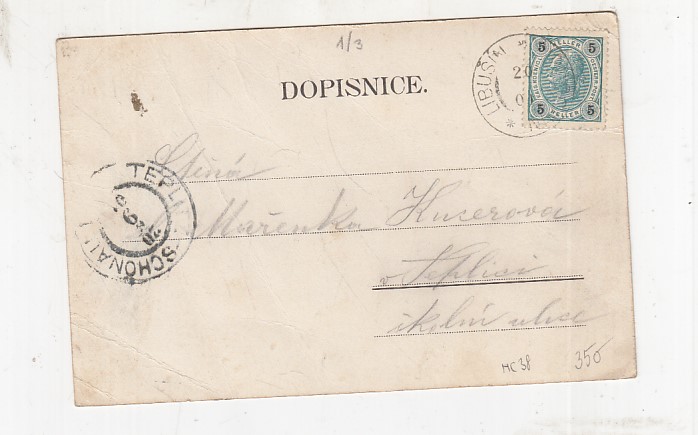 1/3
DOPISNICE.
LIBUŠÍN
20
5 HELLER 5
5 HELLER 5
TEPLITZ-SCHÖNAU 1
Slečna
Mařenka Kucerová
v Teplici
školní ulice
HC 38
350